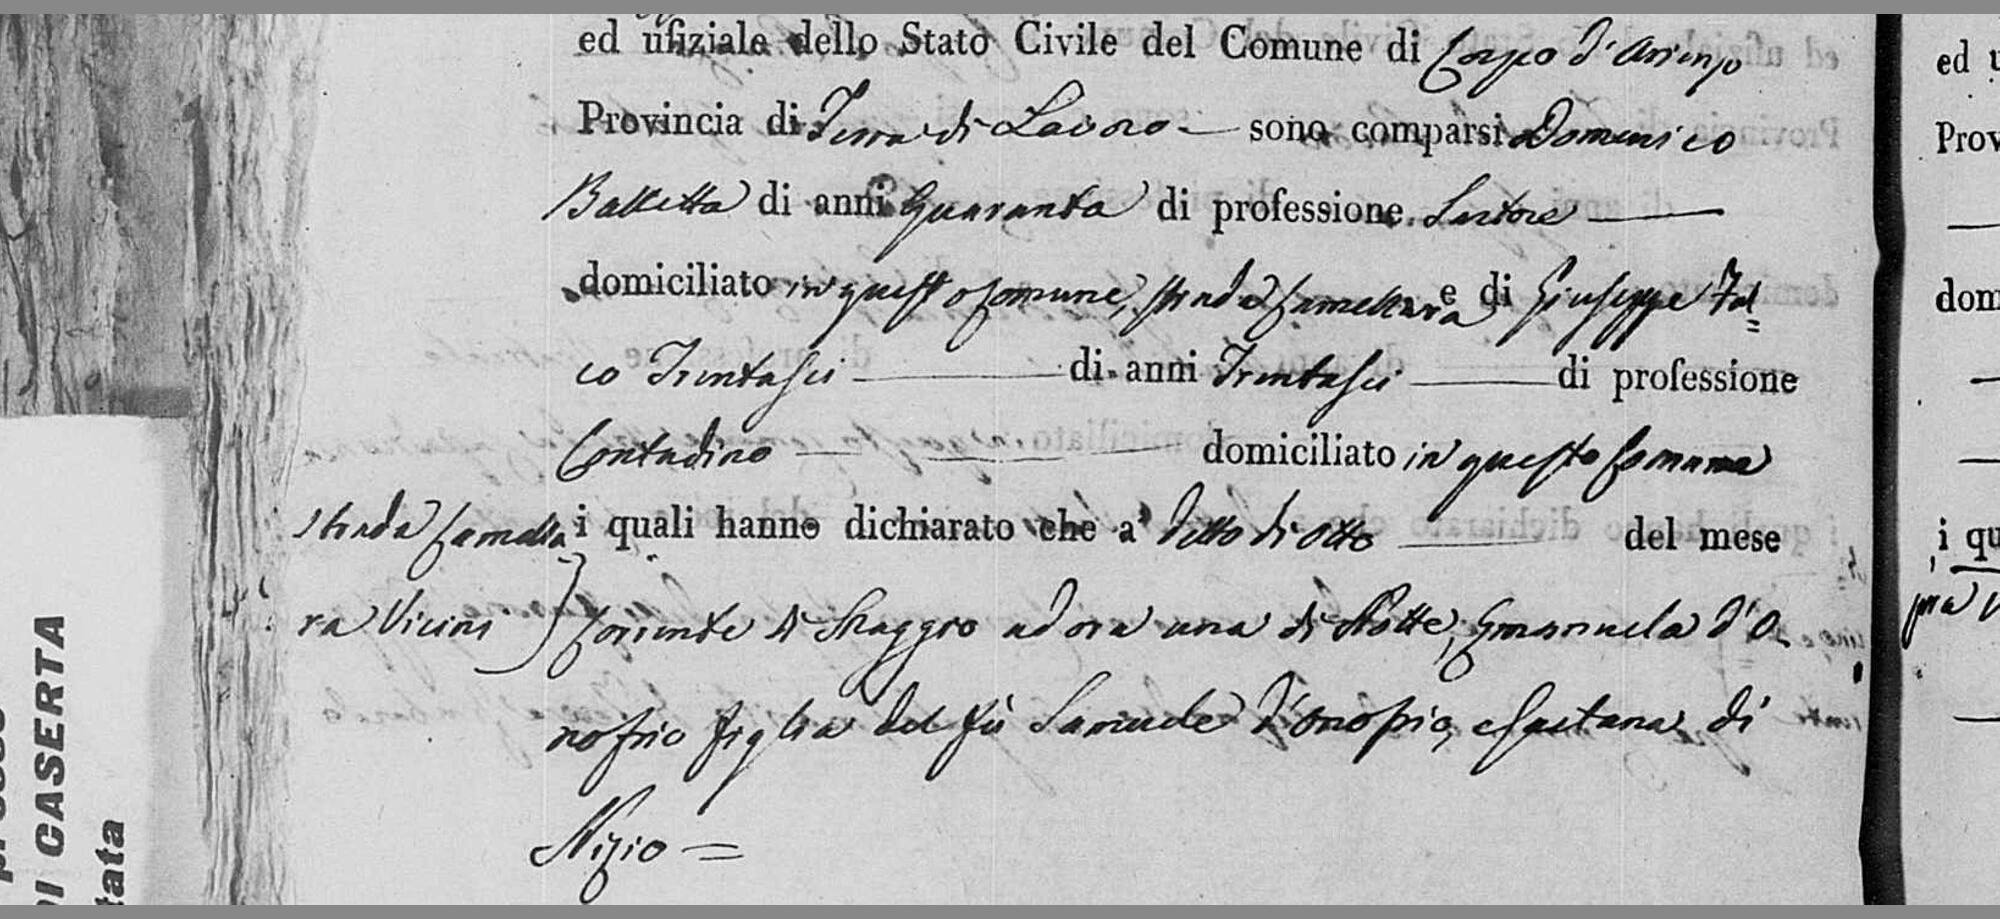 ed ufiziale dello Stato Civile del Comune di Corpo d'Arienzo
Provincia di Terra di Lavoro sono comparsi Domenico
Balletta di anni Quaranta di professione Sartore
domiciliato in questo Comune, strada Camellara e di Giuseppe Fal=
co Trentasei di anni Trentasei di professione
Contadino domiciliato in questo Comune
strada Camella
ra Vicini
i quali hanno dichiarato che a' detto di otto del mese
Corrente di Maggio ad ora una di Notte, Emanuela d'O
nofrio figlia del fù Samuele d'Onofrio, e Gaetana di
Nizio =
DI CASERTA
tata
ed u
Prov
dom
i qu